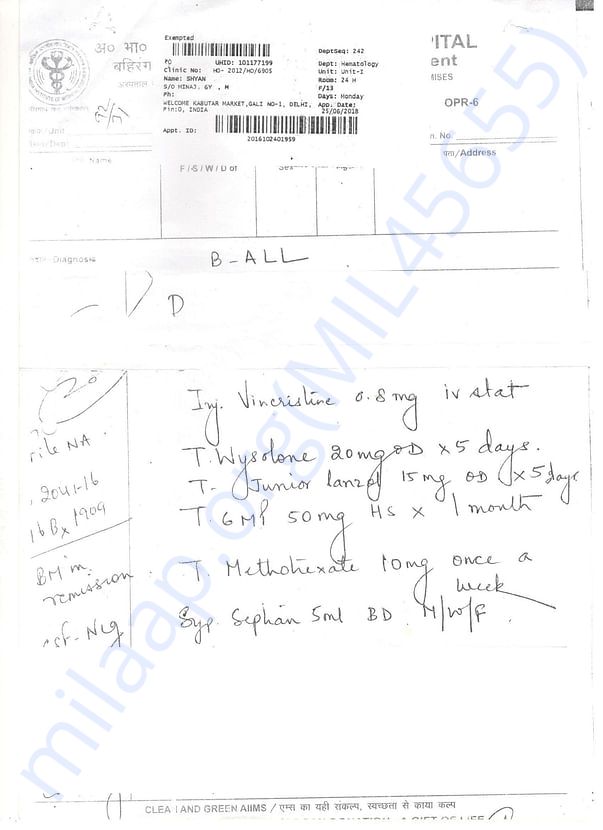 Exempted
अ० भा०
UHID: 101177199
DeptSeq: 242
Clinic No: HO- 2012/HO/6905
Dept: Hematology
Name: SHYAN
Unit: Unit-I
S/O MINAJ, 6Y , M
Room: 24 H
Ph:
F/13
WELCOME KABUTAR MARKET,GALI NO-1, DELHI,
Days: Monday
Pin:0, INDIA
App. Date:
25/06/2018
Appt. ID:
2016102401959
ITAL
ent
MISES
OPR-6
n. No.
पता/Address
Name
F / S / W / D of
Diagnosis
B-ALL
D
Inj. Vincristine 0.8mg iv stat
T. Wysolone 20mg OD x 5 days.
T- Junior lanzol 15 mg OD x 5 days
T. 6MP 50mg HS x 1 month
T. Methotrexate 10mg once a
week
Syp. Sephan 5ml BD M/W/F
File NA
2041-16
16 Bx 1909
BM in
remission
csf- Neg
milaap.org(MIL45655)
CLEA I AND GREEN AIIMS / एम्स का यही संकल्प, स्वच्छता से काया कल्प